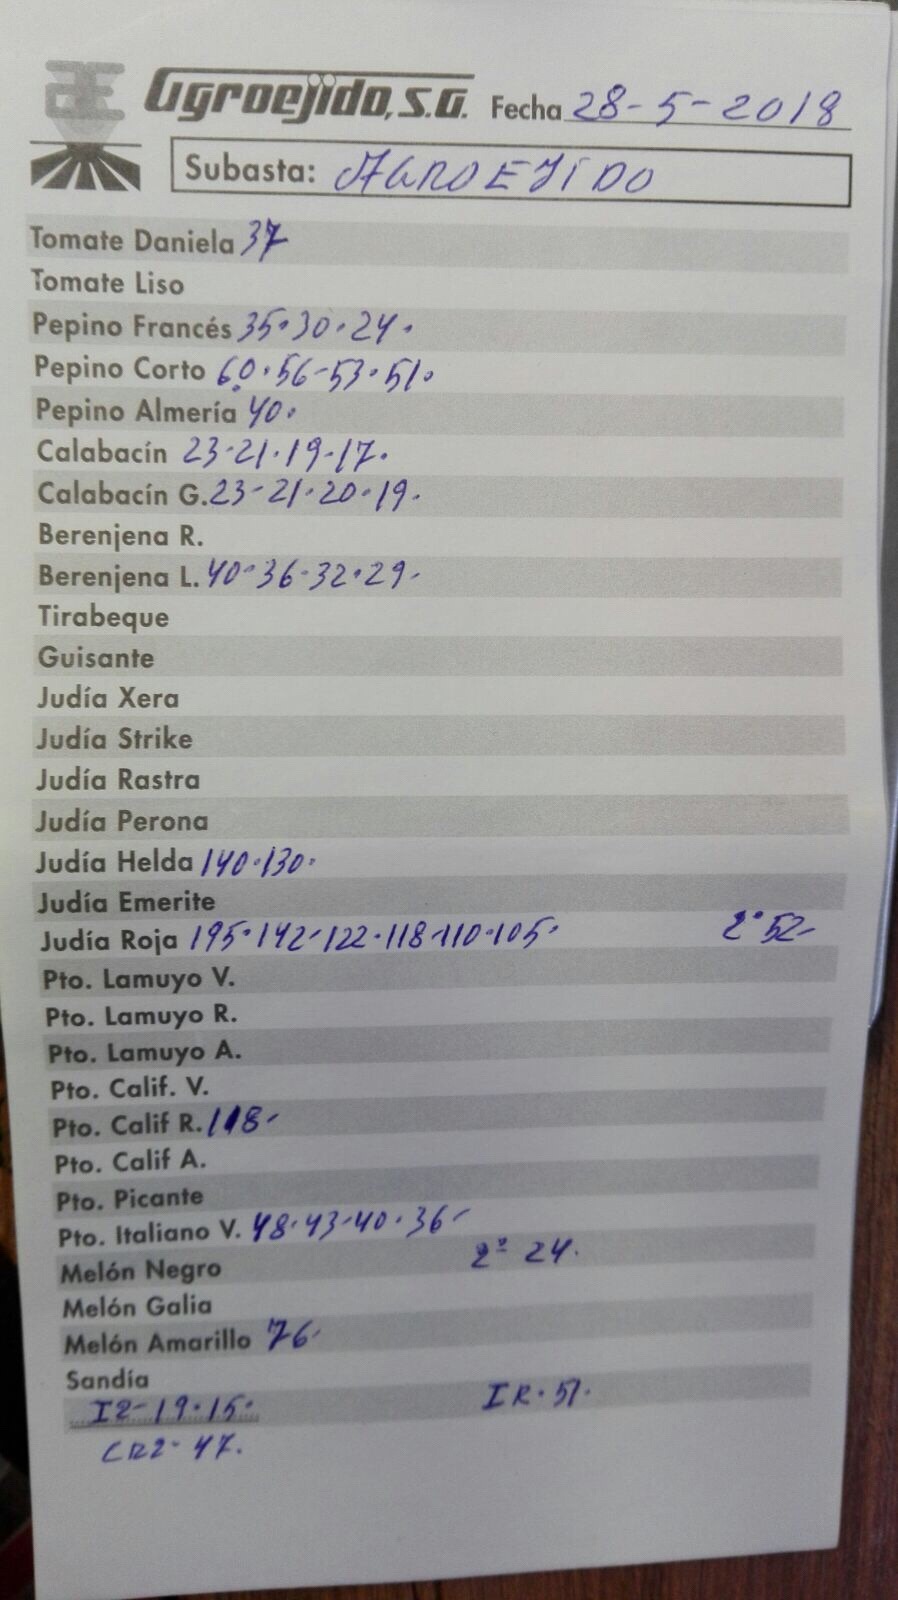 Agroejido, S.A. Fecha 28-5-2018
Subasta: AGROEJIDO
Tomate Daniela 37
Tomate Liso
Pepino Francés 35·30·24.
Pepino Corto 60·56-53·51.
Pepino Almería 40.
Calabacín 23-21·19-17.
Calabacín G. 23-21·20·19.
Berenjena R.
Berenjena L. 40-36-32·29-
Tirabeque
Guisante
Judía Xera
Judía Strike
Judía Rastra
Judía Perona
Judía Helda 140·130·
Judía Emerite
Judía Roja 195·142-122·118-110·105· 2ª 52-
Pto. Lamuyo V.
Pto. Lamuyo R.
Pto. Lamuyo A.
Pto. Calif. V.
Pto. Calif R. 118-
Pto. Calif A.
Pto. Picante
Pto. Italiano V. 48·43-40·36-
2ª 24.
Melón Negro
Melón Galia
Melón Amarillo 76·
Sandía
I2-19·15· IR·51·
CR2-47.